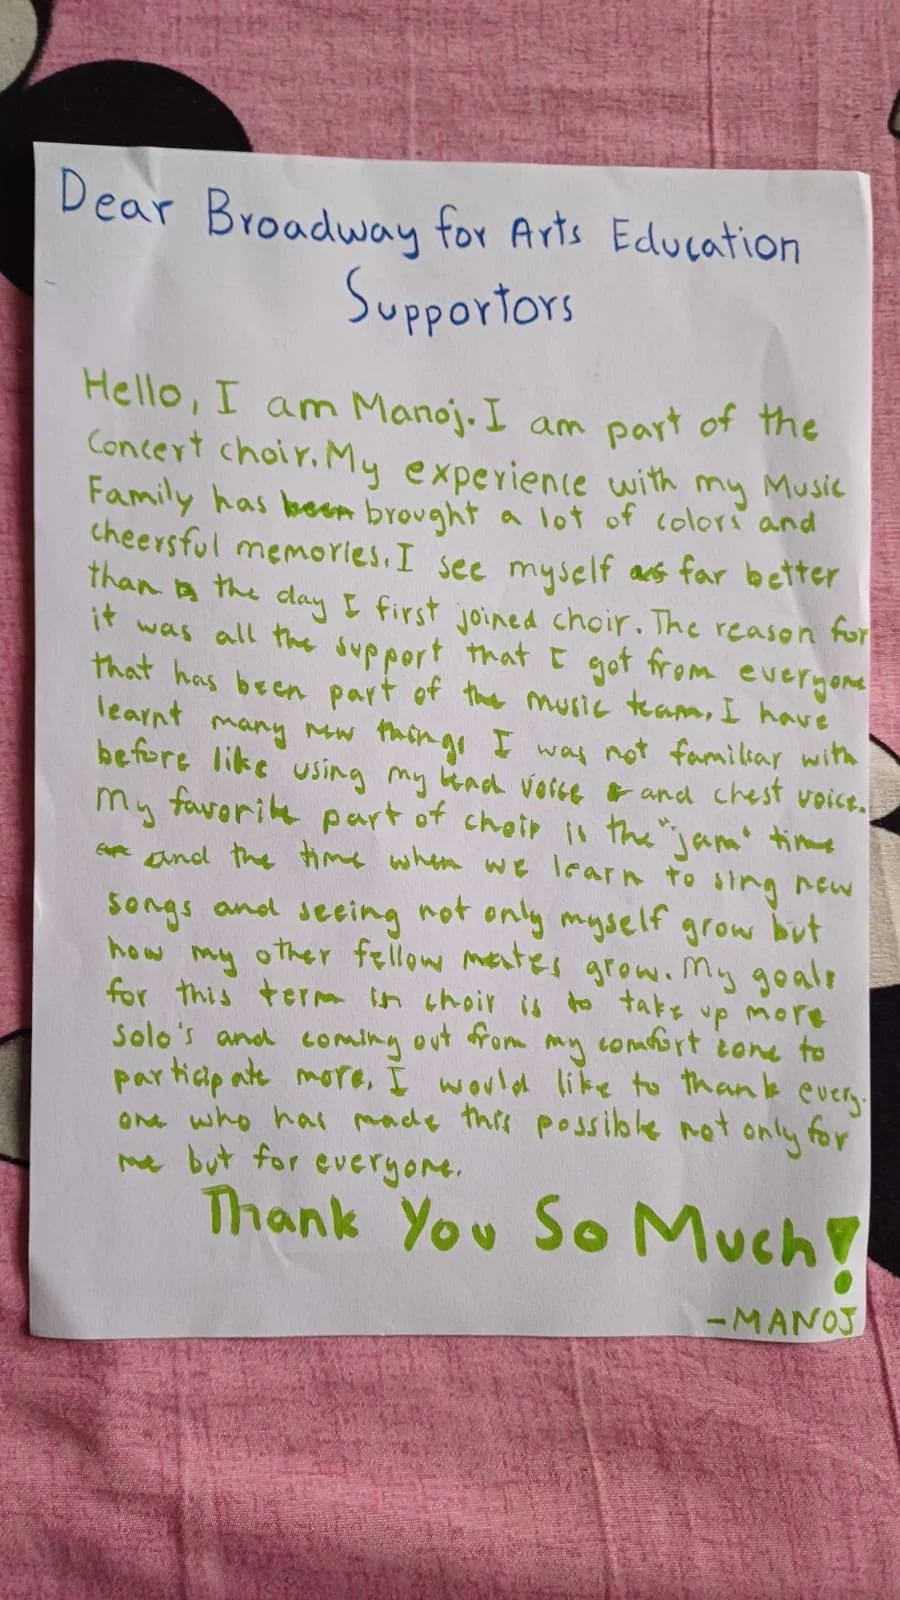 Dear Broadway for Arts Education
Supportors
Hello, I am Manoj. I am part of the
Concert choir. My experience with my Music
Family has been brought a lot of colors and
cheersful memories. I see myself as far better
than the day I first joined choir. The reason for
it was all the support that I got from everyone
that has been part of the music team. I have
learnt many new things I was not familiar with
before like using my head voice and chest voice.
My favorite part of choir is the "jam" time
and the time when we learn to sing new
songs and seeing not only myself grow but
how my other fellow mates grow. My goals
for this term in choir is to take up more
solo's and coming out from my comfort zone to
participate more. I would like to thank every-
one who has made this possible not only for
me but for everyone.
Thank You So Much!
-MANOJ